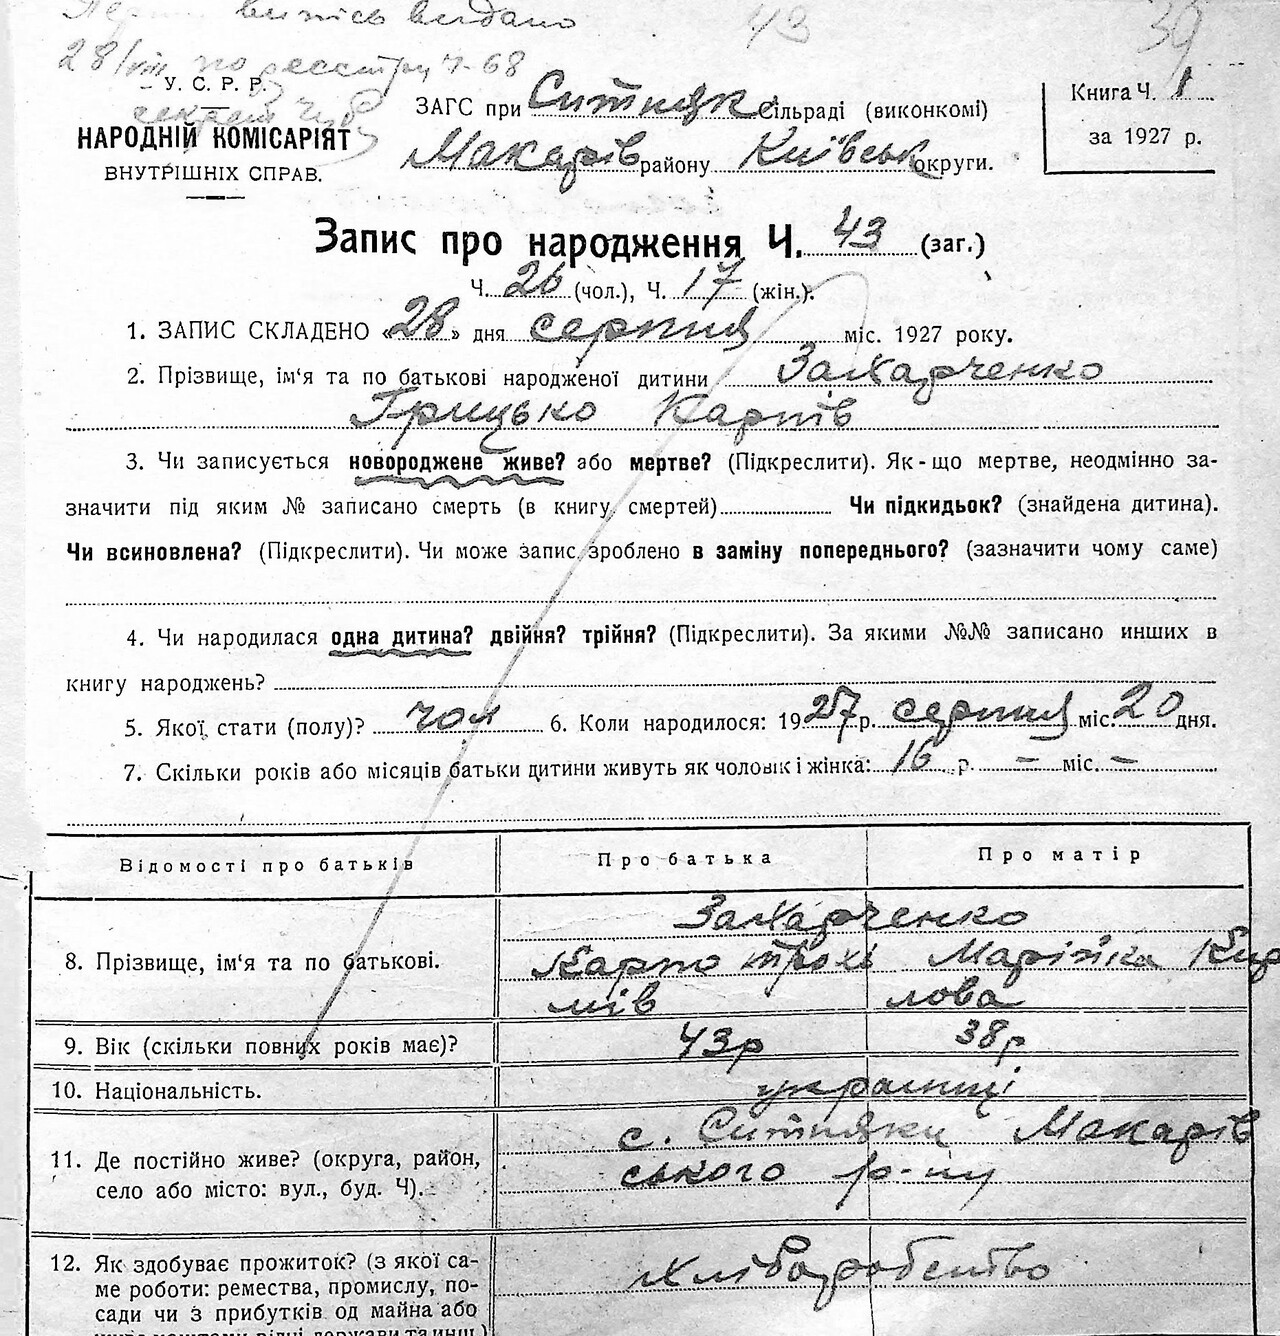 випись видано 43 39
28/VIII по реестру Ч-68
У. С. Р. Р.
НАРОДНІЙ КОМІСАРІЯТ
ВНУТРІШНІХ СПРАВ.
ЗАГС при Ситняцк сільраді (виконкомі)
Макарів району Київськ округи.
Книга Ч. 1
за 1927 р.
Запис про народження Ч. 43 (заг.)
Ч. 26 (чол.), Ч. 17 (жін.).
1. ЗАПИС СКЛАДЕНО «28» дня серпня міс. 1927 року.
2. Прізвище, ім‘я та по батькові народженої дитини Захарченко
Грицько Карпів
3. Чи записується новороджене живе? або мертве? (Підкреслити). Як-що мертве, неодмінно за-
значити під яким № записано смерть (в книгу смертей) Чи підкидьок? (знайдена дитина).
Чи всиновлена? (Підкреслити). Чи може запис зроблено в заміну попереднього? (зазначити чому саме)
4. Чи народилася одна дитина? двійня? трійня? (Підкреслити). За якими №№ записано инших в
книгу народжень?
5. Якої стати (полу)? чол 6. Коли народилося: 1927 р. серпня міс. 20 дня.
7. Скільки років або місяців батьки дитини живуть як чоловік і жінка: 16 р. — міс. —
Відомості про батьків Про батька Про матір
Захарченко
8. Прізвище, ім‘я та по батькові. Карпо Трохи Марійка Кир
мів лова
9. Вік (скільки повних років має)? 43р 38р
10. Національність. українці
с. Ситняки Макарів
11. Де постійно живе? (округа, район, ського р-ну
село або місто: вул., буд. Ч).
12. Як здобуває прожиток? (з якої са- хліборобство
ме роботи: ремества, промислу, по-
сади чи з прибутків од майна або